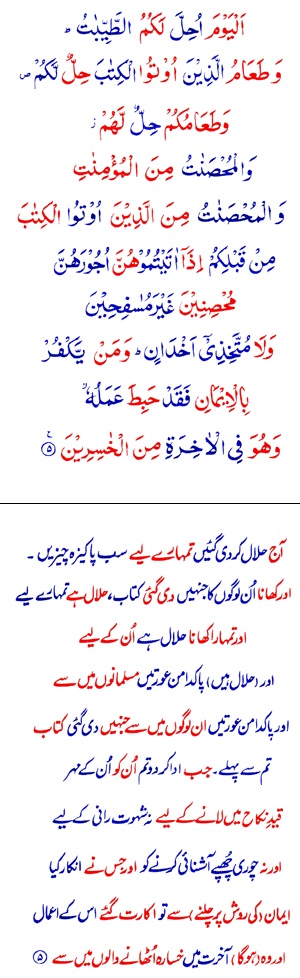 اَلْيَوْمَ اُحِلَّ لَكُمُ الطَّيِّبٰتُ ؕ
وَطَعَامُ الَّذِيْنَ اُوْتُوا الْكِتٰبَ حِلٌّ لَّكُمْ ۪
وَطَعَامُكُمْ حِلٌّ لَّهُمْ ز
وَالْمُحْصَنٰتُ مِنَ الْمُؤْمِنٰتِ
وَالْمُحْصَنٰتُ مِنَ الَّذِيْنَ اُوْتُوا الْكِتٰبَ
مِنْ قَبْلِكُمْ اِذَاۤ اٰتَيْتُمُوْهُنَّ اُجُوْرَهُنَّ
مُحْصِنِيْنَ غَيْرَ مُسٰفِحِيْنَ
وَلَا مُتَّخِذِيْۤ اَخْدَانٍ ؕ وَمَنْ يَّكْفُرْ
بِالْاِيْمَانِ فَقَدْ حَبِطَ عَمَلُهٗ ؗ
وَهُوَ فِى الْاٰخِرَةِ مِنَ الْخٰسِرِيْنَ ﴿۵﴾
آج حلال کر دی گئیں تمہارے لیے سب پاکیزہ چیزیں ۔
اور کھانا اُن لوگوں کا جنہیں دی گئی کتاب، حلال ہے تمہارے لیے
اور تمہارا کھانا حلال ہے اُن کے لیے
اور (حلال ہیں) پاکدامن عورتیں مسلمانوں میں سے
اور پاکدامن عورتیں ان لوگوں میں سے جنہیں دی گئی کتاب
تم سے پہلے ۔ جب ادا کر دو تم اُن کو اُن کے مہر
قیدِ نکاح میں لانے کے لیے نہ شہوت رانی کے لیے
اور نہ چوری چھپے آشنائی کرنے کو اور جس نے انکار کیا
ایمان (کی روش پر چلنے) سے تو اکارت گئے اس کے اعمال
اور وہ (ہوگا) آخرت میں خسارہ اُٹھانے والوں میں سے ﴿۵﴾